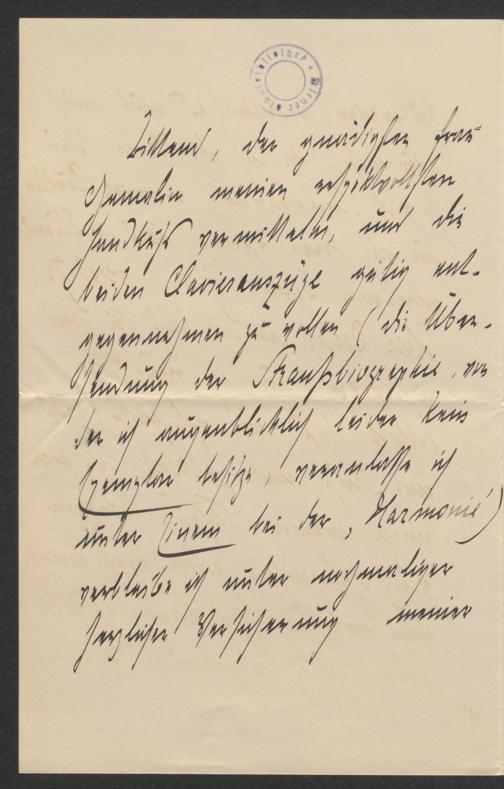 Wiener Stadtbibliothek
Bittend, der gnädigsten Frau
Gemalin meinen respektvollsten
Handkuß vermitteln, und die
beiden Clavierauszüge gütig ent-
gegennehmen zu wollen (die Über-
sendung der Straußbiographie, von
der ich augenblicklich leider kein
Exemplar besitze, veranlasse ich
unter Einem bei der „Harmonie")
verbleibe ich unter nochmaliger
herzlicher Versicherung meiner